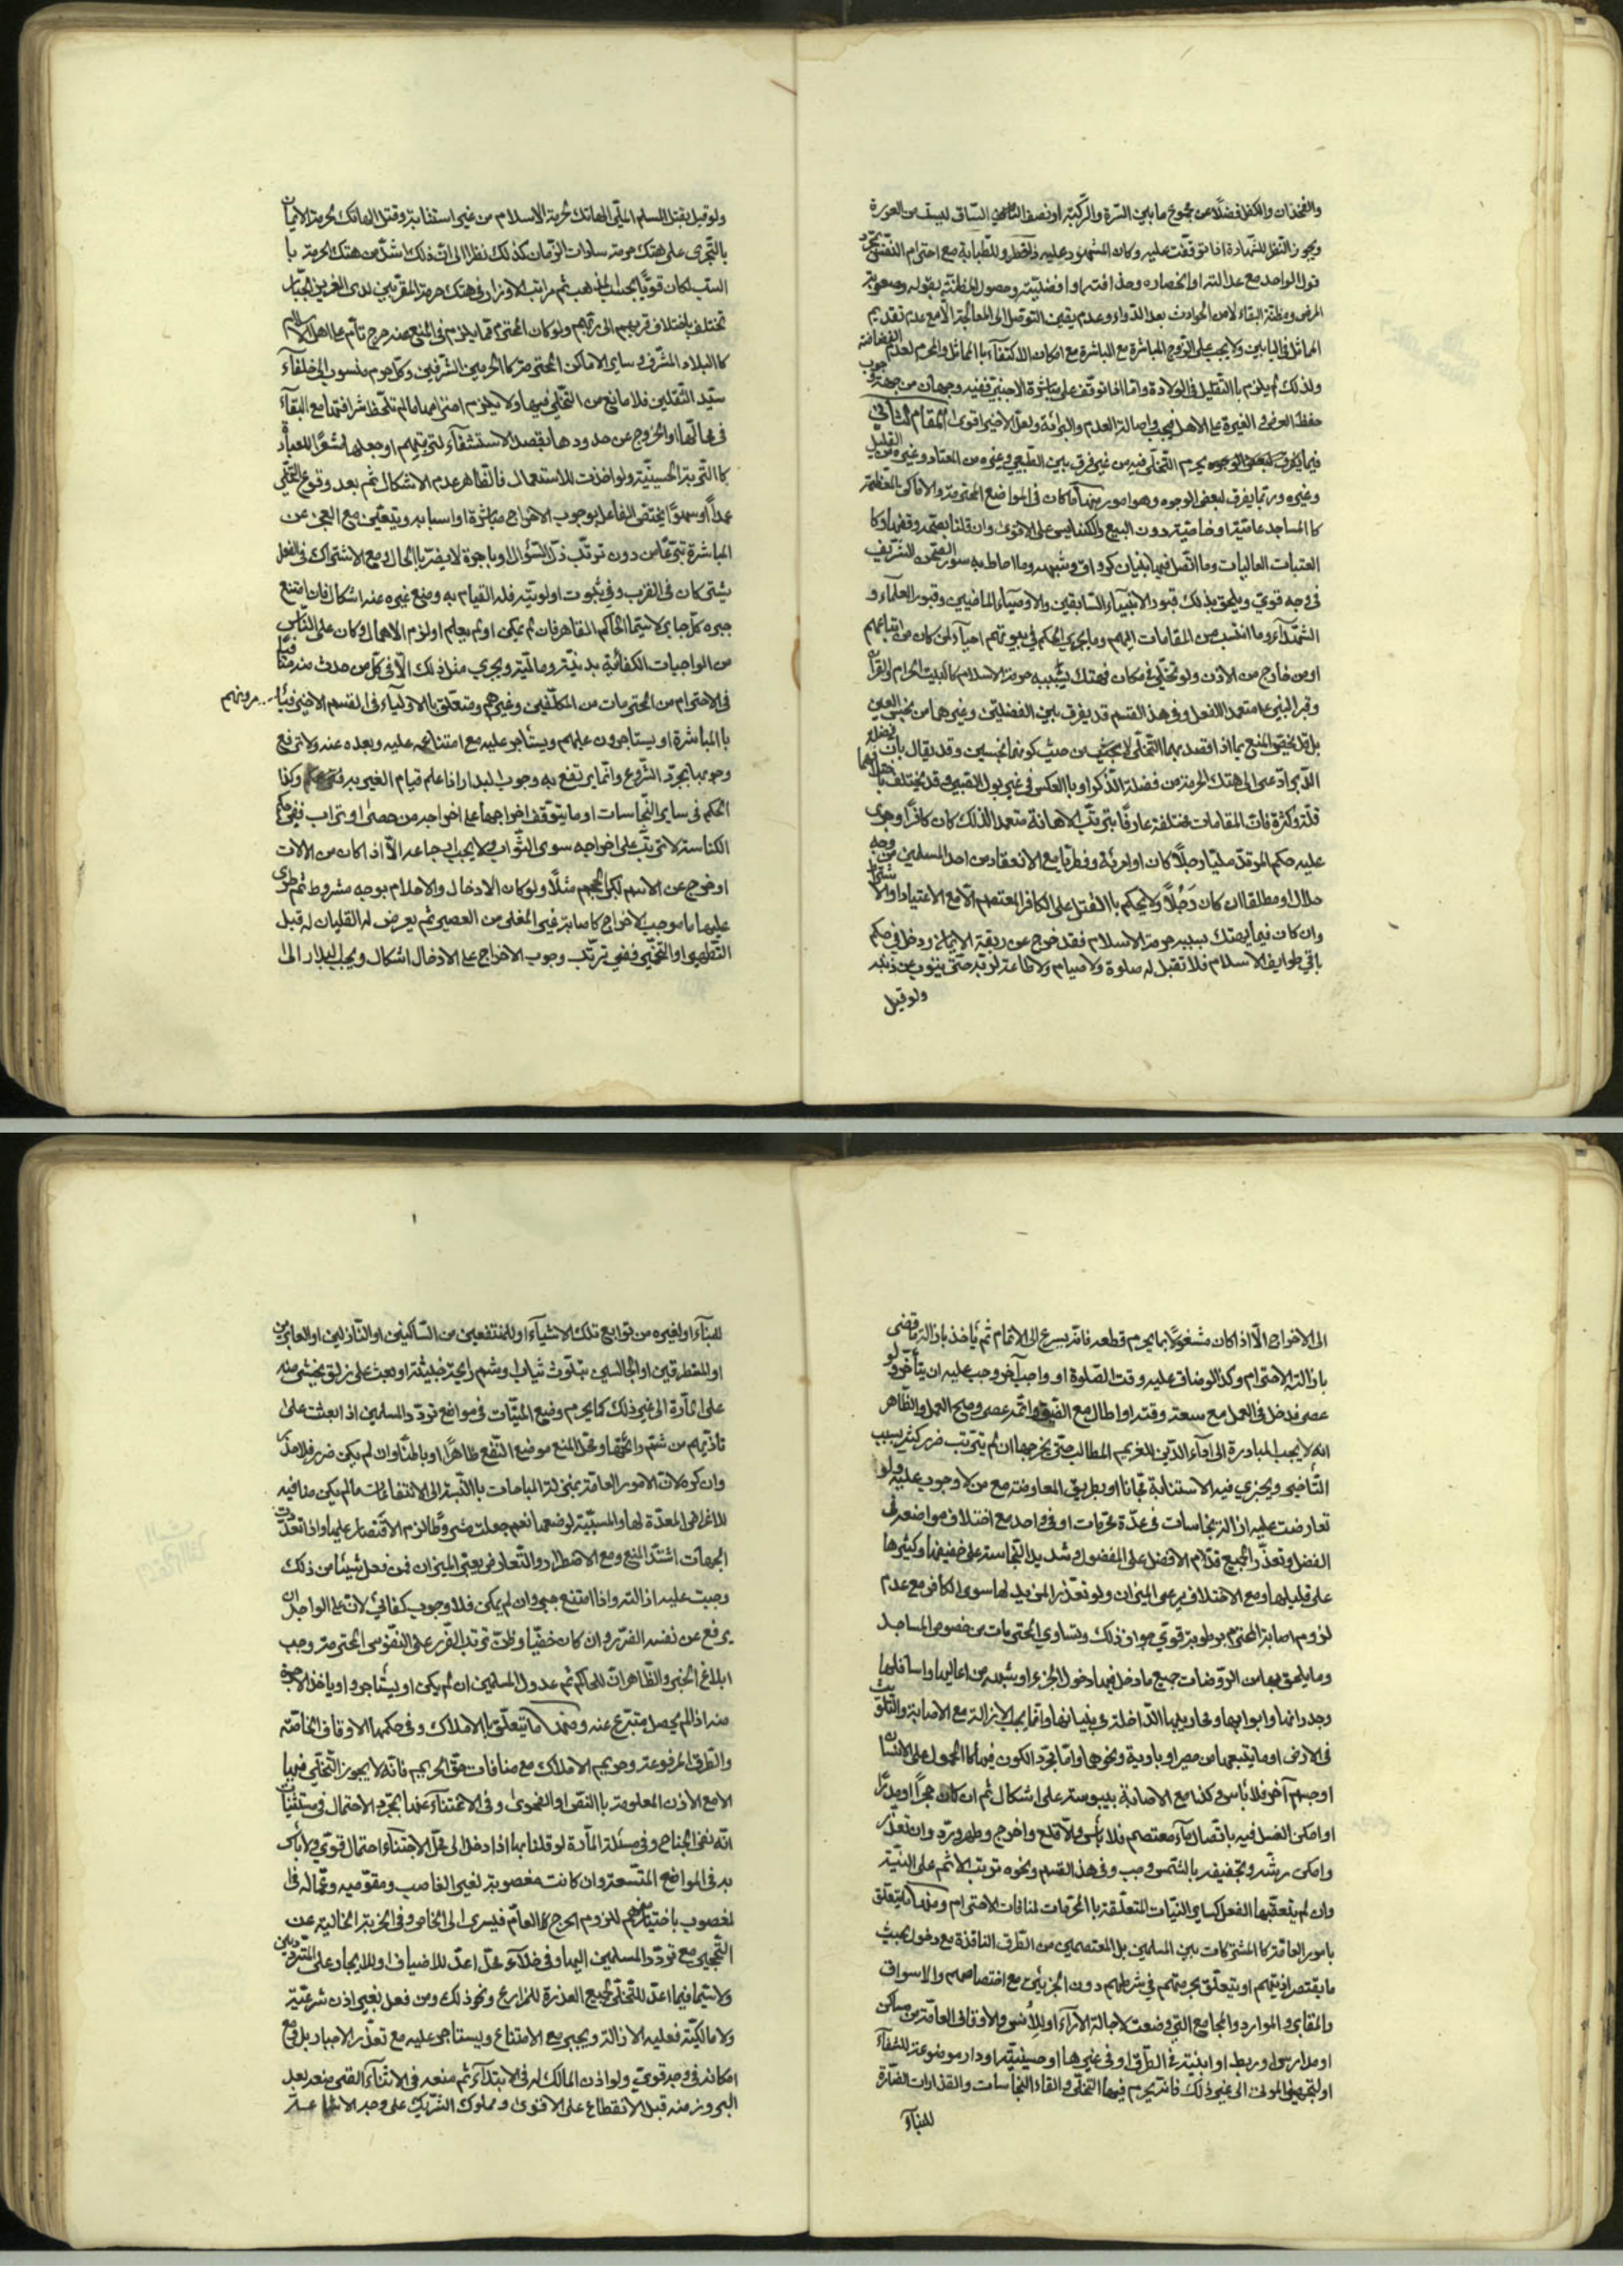 والفخذان والكفل فضلا عن مجموع ما بين السرة والركبة او نصف الساق ليست من العورة
ويجوز النظر للشهادة اذا توقفت عليه وكان المشهود عليه ذا خطر وللطبابة مع احترام النفس
قول الواحد مع عدالته او انحصاره وحذاقته او افضليته وحصول المظنة بقوله وصعوبة
المرض ومظنة البقاء لا من الحوادث بعد الدواء وعدم يقين التوصل الى المعالجة الا مع عدم تقديم
المماثل في البابين ولا يجب على الزوج المباشرة مع امكان الاكتفاء بالمماثل والمحرم لعدم
ولذلك لم يلزم بالتقبيل في الولادة واما اذا توقف على مباشرة الاجنبي ففيه وجهان من جهة
حفظ العرض والغيرة على الاهل فيجب واصالة العدم والبرائة ولعل الاخير اقوى المقام الثاني
فيما يحرم التخلي فيه من غير فرق بين الطبيعي وغيره من المعتاد وغيره من القليل
وغيره وربما يفرق لبعض الوجوه وهو امور منها ما كان في المواضع المحترمة والاماكن المعظمة
كالمساجد عامية او خاصية دون البيع والكنايس على الاقوى وان قلنا بصحة وقفها وكا
العتبات العاليات وما اتصل فيها بنيان كرواق وشبهه وما احاط به سور الصحن الشريف
في وجه قوي ويلحق بذلك قبور الانبياء السابقين والاوصياء الماضيين وقبور العلماء و
الشهداء وما انتسب من المقامات اليهم وما يجري الحكم في بيوتهم احياء لمن كان من اتباعهم
او من خارج من الاذن ولو تخلى في مكان فهتك بسببه حرمة الاسلام كالبيت الحرام والقرآن
وقبر النبي متعمدا للفعل وفي هذا القسم قد يفرق بين الفضلتين وغيرهما من نجس العين
بل قد يخص المنع بما اذا قصد بهما التخلي لا بحيث من حيث كونهما نجسين وقد يقال بان فضلة
الدبر ادعى الى هتك الحرمة من فضلة الذكر او بالعكس في غير بول الصبي وقد يختلف
قلة وكثرة فان المقامات مختلفة عارفا بترتب الاهانة متعمدا لذلك كان كافرا وجرى
عليه حكم المرتد مليا رجلا كان او امرئة وفطريا مع الانعقاد من احد المسلمين من وجه
حلال او مطلقا ان كان رجلا ولا يحكم بالقتل على الكافر المعتصم الا مع الاعتياد او الا
وان كان فيما يهتك بسببه حرمة الاسلام فقد خرج عن ربقة الايمان ودخل في حكم
باقي طوايف الاسلام فلا تقبل له صلوة ولا صيام ولا طاعة لربه حتى يتوب عن ذنبه
ولو قيل
ولو قيل بقتل المسلم الملي الهاتك لحرمة الاسلام من غير استتابة وقتل الهاتك لحرمة الايمان
بالتجري على هتك حرمة سادات الزمان كذلك نظرا الى ان ذلك اشد من هتك الحرمة با
السب لكان قويا بحسب المذهب ثم مراتب الاوزار في هتك حرمة المقربين لدى العزيز الجبار
تختلف باختلاف قربهم الى ربهم ولو كان المحترم مما يلزم في المنع عنه حرج تام على اهل الاسلام
كالبلاد المشرفة وساير الاماكن المحترمة كالحرمين الشرفين وكل حرم منسوب الى خلفاء
سيد الثقلين فلا مانع من التخلي فيها ولا يلزم احترامها ما لم تلحظ شرافتها مع البقاء
في محالها او الخروج عن حدودها بقصد الاستشفاء لتربتهم او جعلها
كالتربة الحسينية ولو اخذت للاستعمال فالظاهر عدم الاشكال ثم بعد وقوع التخلي
عمدا او سهوا يختص الفاعل بوجوب الاخراج مباشرة او اسبابه ويتعين مع العجز عن
المباشرة تبرعا من دون ترتب ذل السؤال او باجرة لا يضر بالحال ومع الاشتراك في الفعل
يشتركان في القرب وفي ثبوت اولويته فله القيام به ومنع غيره عنه اشكال فان امتنع
جبره كل جابر لا سيما الحاكم القاهر فان لم يمكن او لم يعلم او لزم الاهمال وكان على الناس
من الواجبات الكفائية بدنية ومالية ويجري مثل ذلك الا في كل من حدث منه
في الاحترام من المحترمات من المكلفين وغيرهم ومتعلق بالاولياء في القسم الاخير
بالمباشرة او يستاجرون عليهم ويستأجر عليه مع امتناعه عليه وبعده عنه ولا ترفع
وجوبها بمجرد الشروع وانما يرتفع به وجوب البدار اذا علم قيام الغير به وكذا
الحكم في ساير النجاسات او ما يتوقف اخراجها على اخراجه من حصى او تراب ففي حكم
الكناسة لا يترتب على اخراجه سوى الثواب ولا يجب ارجاعه الا اذا كان من الالات
او خرج عن الاسم لكبر الحجم مثلا ولو كان الادخال والاحلام بوجه مشروط ثم طرى
عليها ما موجب الاخراج كاصابة غير المغلى من العصير ثم يعرض له الغليان له قبل
التطهير او التخير ففي ترتب وجوب الاخراج على الادخال اشكال ويجب البدار الى
الى الاخراج الا اذا كان مشغولا بما يحرم قطعه فانه يسرع الى الاتمام ثم يأخذ بازالة ما قضى
بازالته الاحترام وكذا لو ضاق عليه وقت الصلوة او واجب آخر وجب عليه ان يتأخر ولو
عصى فدخل في العمل مع سعة وقته او اطال مع الضيق واتمه عصى وصح العمل والظاهر
انه لا يجب المبادرة الى اداء الدين للغريم المطالب حتى يخرجها ان لم يترتب ضرر كثير بسبب
التأخير ويجزي فيه الاستنابة مجانا او بطريق المعاوضة مع من لا وجوب عليه ولو
تعارضت عليه ازالة نجاسات في عدة محرمات او في واحد مع اختلاف مواضعه في
الفضل وتعذر الجميع قدم الافضل على المفضول وشديد النجاسة على خفيفها وكثيرها
على قليلها ومع الاختلاف يرعى الميزان ولو تعذر المزيل لها سوى الكافر مع عدم
لزوم اصابة المحترم برطوبة قوي جواز ذلك وبتساوي المحترمات من خصوص المساجد
وما يلحق بها من الروضات جميع ما دخل فيها دخول الجزء او شبهه من اعاليها واسافلها
وجدرانها وابوابها ومحاريبها الداخلة في بنيانها وانما يجب الازالة مع الاصابة والتلويث
في الارض او ما يتبعها من حصير او بارية ونحوها واما مجرد الكون فيها كالمحمول على الانسان
او جسم آخر فلا بأس وكذا مع الاصابة بيبوسة على اشكال ثم ان كان حجرا او مدرا
او امكن الغسل فيه باتصال ماء معتصم فلا بأس والا قلع واخرج وطهر ورد وان تعذر
وامكن رشه وتجفيفه بالشمس وجب وفي هذا القسم ونحوه ترتب الاثم على النية
وان لم يتعقبها الفعل كساير النيات المتعلقة بالمحرمات لمنافات الاحترام ومنها ما يتعلق
بامور العامة كالمشتركات بين المسلمين بل المعتصمين من الطرق النافذة مع دخوله بحيث
ما يقتصر اذيتهم او يتعلق بحرمتهم في شرطهم دون الجزئي مع اختصاصهم والاسواق
والمقابر والموارد والمجامع التي وضعت لاجالة الآراء او للأنس والاوقاف العامة من مساكن
او مدارس او ربط او ابنية في الطرق او في غيرها او حسينية او دار موضوعة للشفاء
او لتجهيز الموتى الى غير ذلك فانه يحرم فيها التخلي والقاء النجاسات والقذارات الضارة
للبناء
للبناء او لغيره من توابع تلك الاشياء او للمنتفعين من الساكنين او النازلين او العابرين
او المتطرقين او الجالسين بتلوث ثياب او شم رايحة خبيثة او بعث على زلق يخشى منه
على المارة الى غير ذلك كما يحرم وضع الميتات في مواضع تردد المسلمين اذا بعثت على
تاذيهم من شمهم رائحتها ومحل المنع موضع النفع ظاهرا او باطنا وان لم يكن ضرر فلا
وان كره لان الامور العامة بمنزلة المباحات بالنسبة الى الانتفاعات ما لم يكن منافيه
للاغراض المعدة لها والمسببة لوضعها نعم لو جعلت شروطا لزم الاقتصار عليها واذا تعددت
الجهات اشتد المنع ومع الاضطرار والتعارض يعتبر الميزان فمن فعل شيئا من ذلك
وجبت عليه ازالته واذا امتنع جبر وان لم يمكن فلا وجوب كفائي لان على الواجد ان
يرفع عن نفسه الضرر وان كان خفيا وظن ترتب الضرر على النفوس المحترمة وجب
ابلاغ الخبر والظاهر ان للحاكم ثم عدول المسلمين ان لم يكن او يستأجروا او ياخذ الاجرة
منه اذا لم يحصل متبرع عنه ومنها ما يتعلق بالاملاك وفي حكمها الاوقاف الخاصة
والطرق المرفوعة وحريم الاملاك مع منافات حق الحريم فانه لا يجوز التخلي فيها
الا مع الاذن المعلومة بالنص او الفحوى وفي الاغتناء عنها بمجرد الاحتمال
انه نفى الجناح وفي مسئلة المارة لو قلنا بها اذا دخل الى محل الاجتناء احتمال قوي ولا بأس
به في المواضع المتسعة وان كانت مغصوبة لغير الغاصب ومقوميه وعماله في
المغصوب باختيارهم للزوم الحرج العام فيسرى الى الخاص وفي الخربة الخالية عن
التحجير مع تردد المسلمين اليها وفي خلاء محل اعد للاضياف او للايجار على المترددين
ولا سيما فيما اعد للتخلي لجمع العذرة للمزارع ونحو ذلك ومن فعل بغير اذن شرعية
ولا مالكية فعليه الازالة ويجبر مع الامتناع ويستاجر عليه مع تعذر الاجبار بل ومع
امكانه في وجه قوي ولو اذن المالك له في الابتداء ثم منعه في الاثناء اقتصر منعه بعد
البروز منه قبل الانقطاع على الاقوى ومملوك الشريك على وجه الاشاعة